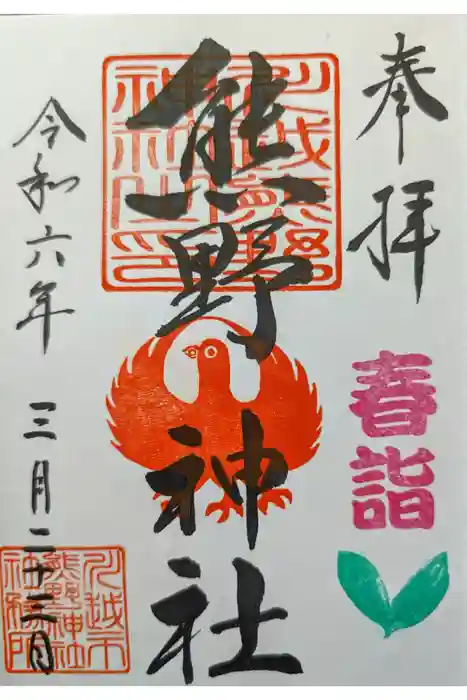 奉拝
春詣
川越熊野
神社之印
熊野神社
令和六年 三月二十三日
川越市
熊野神社
社務所